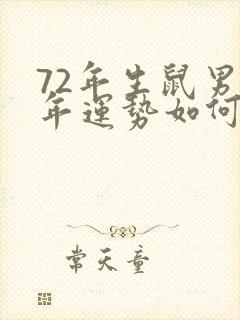 72年生鼠男
年運勢如何
常天童